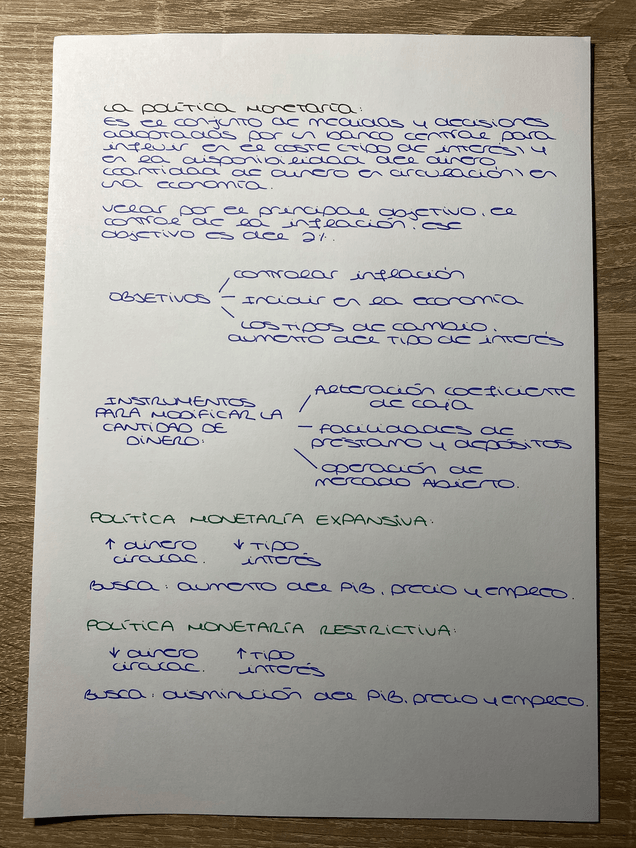 LA POLÍTICA MONETARÍA:
ES EL CONJUNTO DE MEDIDAS Y DECISIONES
ADAPTADAS POR UN BANCO CENTRAL PARA
INFLUIR EN EL COSTE (TIPO DE INTERÉS) Y
EN LA DISPONIBILIDAD DEL DINERO
(CANTIDAD DE DINERO EN CIRCULACIÓN) EN
UNA ECONOMÍA.
VELAR POR EL PRINCIPAL OBJETIVO, EL
CONTROL DE LA INFLACIÓN. ESE
OBJETIVO ES DEL 2%.
OBJETIVOS
CONTROLAR INFLACIÓN
INCIDIR EN LA ECONOMÍA
LOS TIPOS DE CAMBIO,
AUMENTO DEL TIPO DE INTERÉS
INSTRUMENTOS
PARA MODIFICAR LA
CANTIDAD DE
DINERO:
ALTERACIÓN COEFICIENTE
DE CAJA
FACILIDADES DE
PRÉSTAMO Y DEPÓSITOS
OPERACIÓN DE
MERCADO ABIERTO.
POLÍTICA MONETARÍA EXPANSIVA:
↑ DINERO ↓ TIPO
CIRCULAC. INTERÉS
BUSCA: AUMENTO DEL PIB, PRECIO Y EMPLEO.
POLÍTICA MONETARÍA RESTRICTIVA:
↓ DINERO ↑ TIPO
CIRCULAC. INTERÉS
BUSCA: DISMINUCIÓN DEL PIB, PRECIO Y EMPLEO.